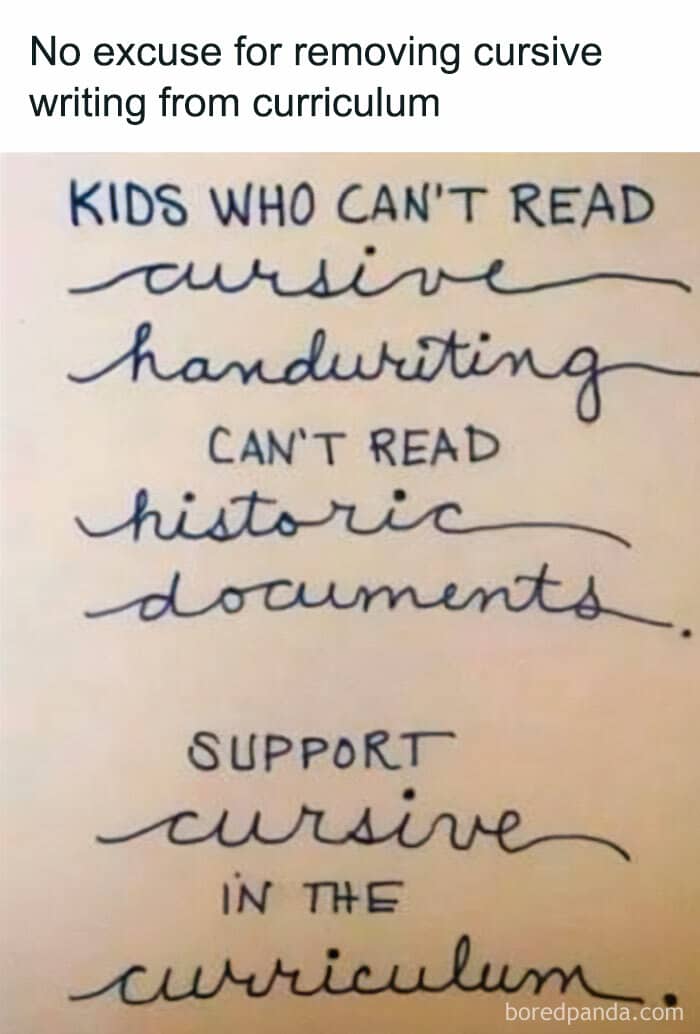 No excuse for removing cursive
writing from curriculum
KIDS WHO CAN'T READ
cursive
handwriting
CAN'T READ
historic
documents.
SUPPORT
cursive
IN THE
curriculum.
boredpanda.com